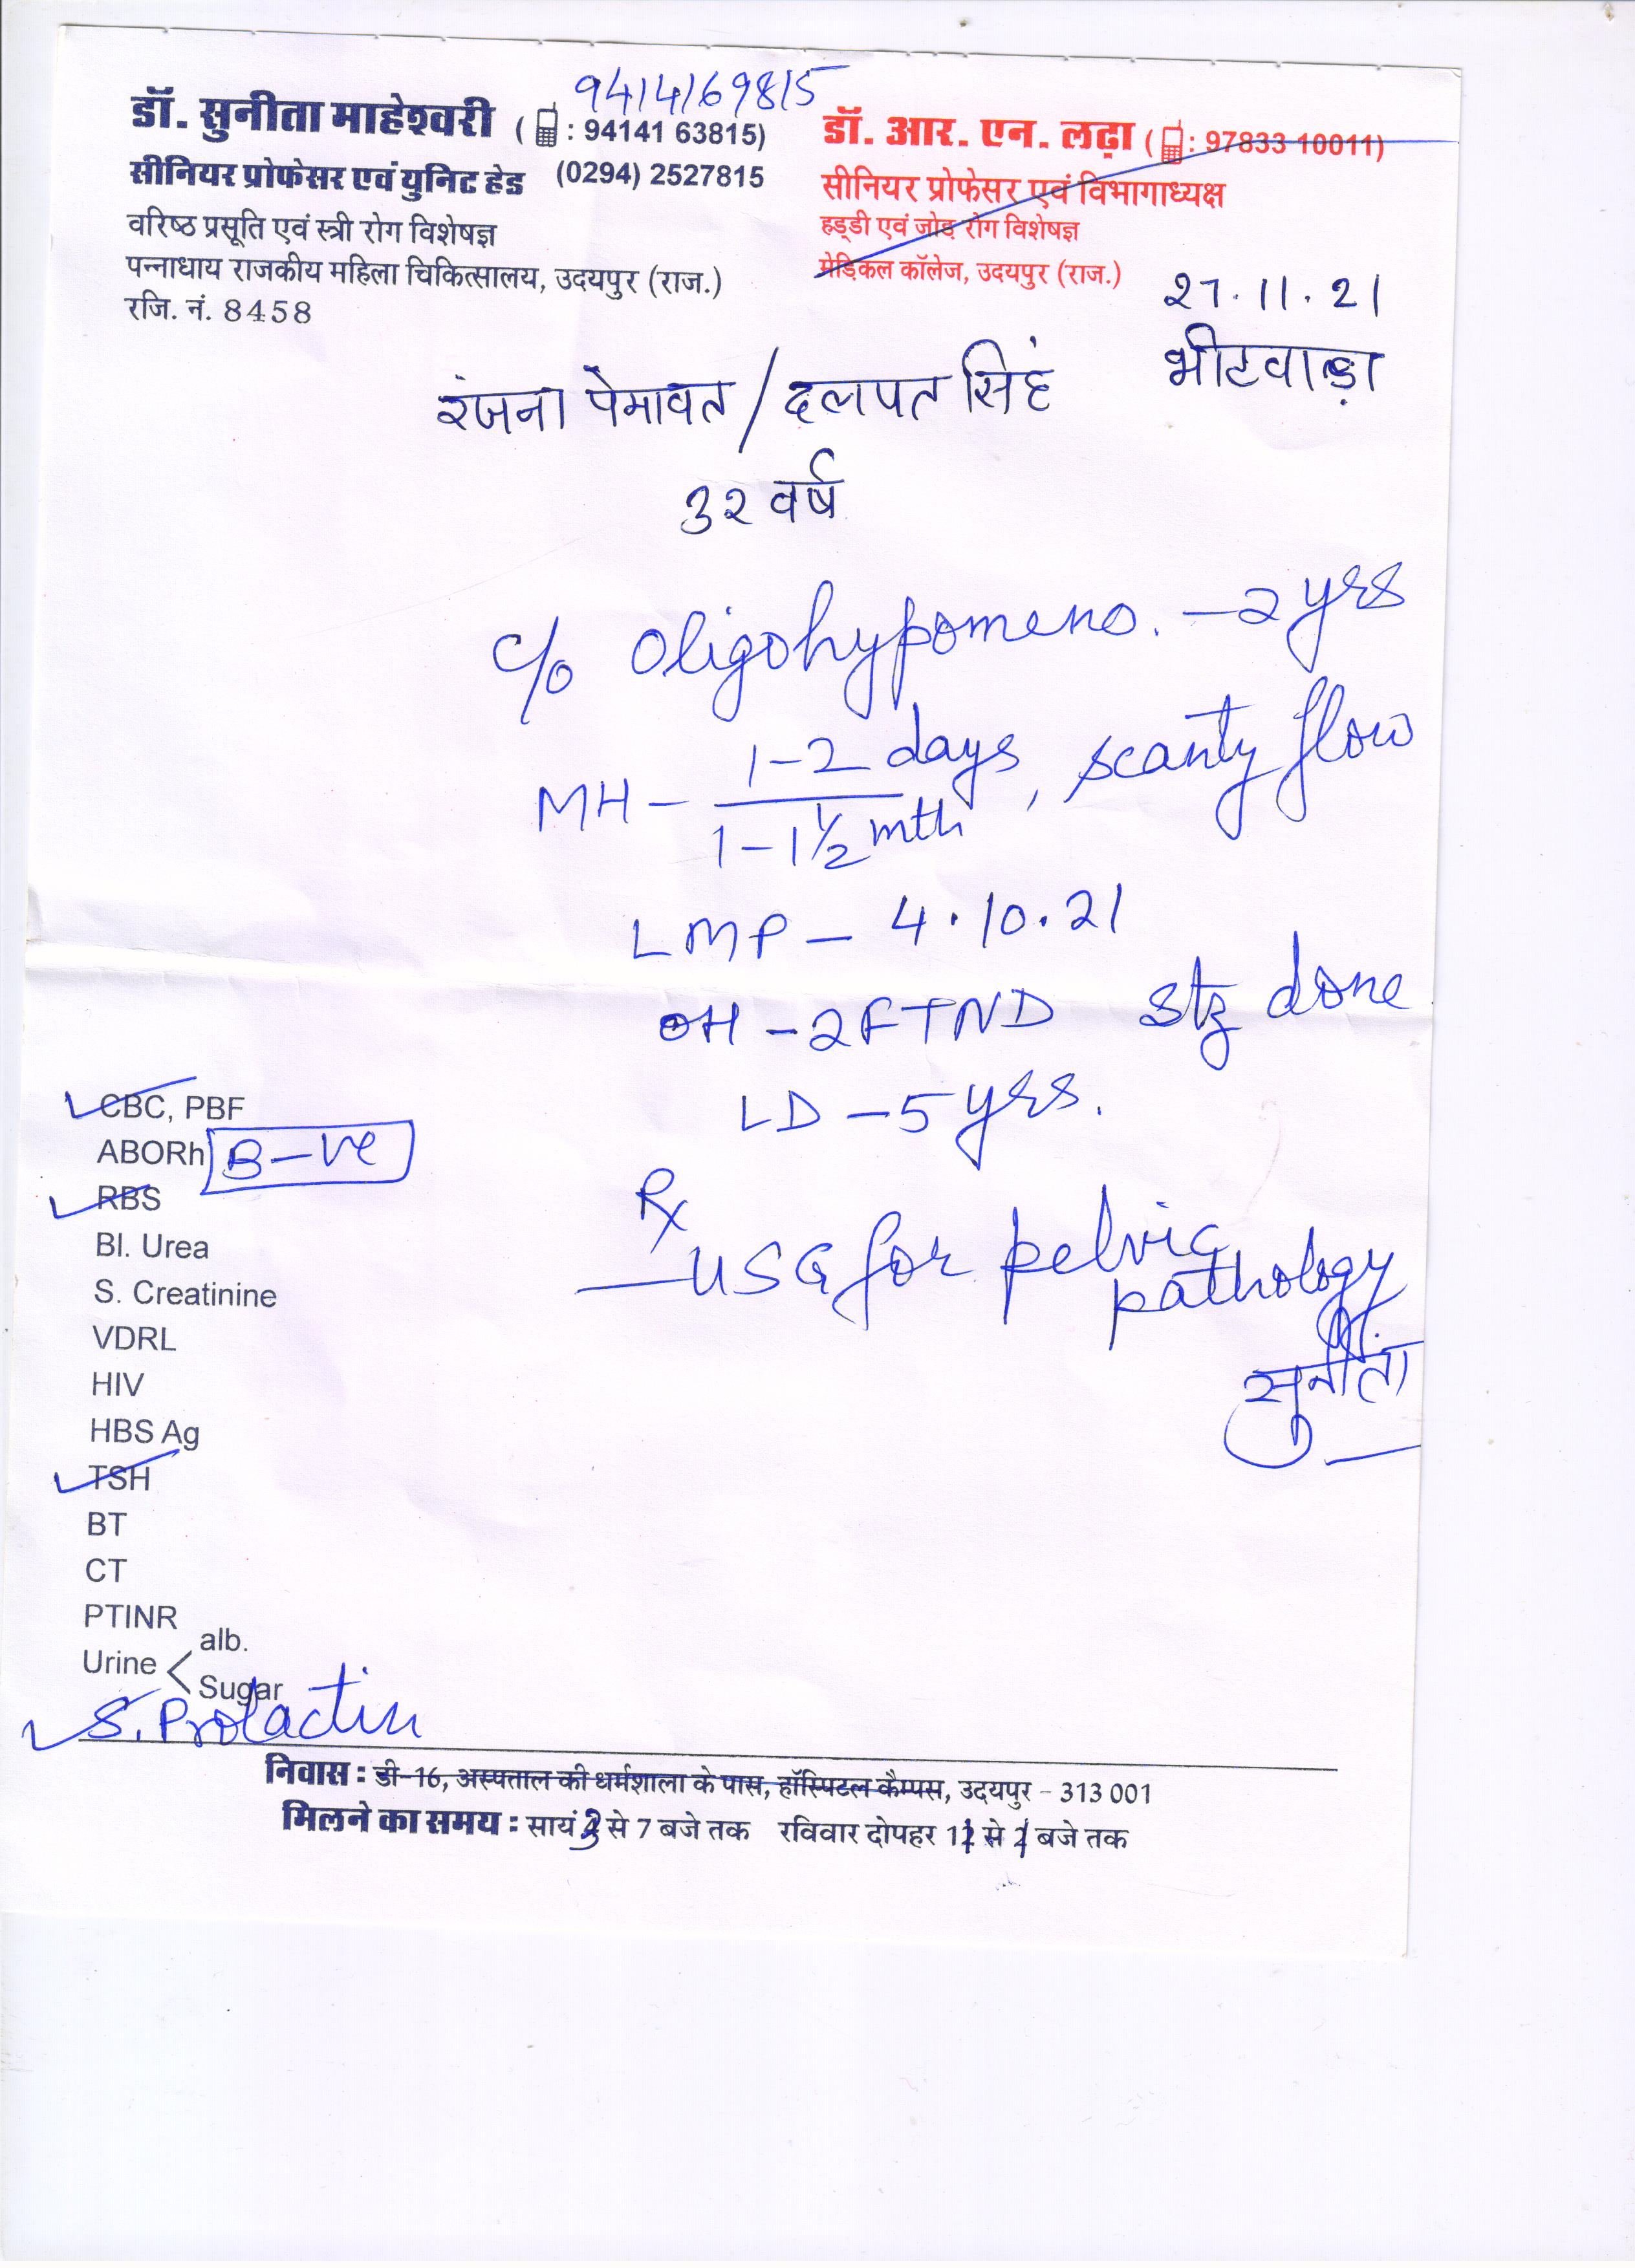 9414169815
डॉ. सुनीता माहेश्वरी ( : 94141 63815)
सीनियर प्रोफेसर एवं युनिट हेड (0294) 2527815
वरिष्ठ प्रसूति एवं स्त्री रोग विशेषज्ञ
पन्नाधाय राजकीय महिला चिकित्सालय, उदयपुर (राज.)
रजि. नं. 8458
डॉ. आर. एन. लढ़ा ( : 97833 10011)
सीनियर प्रोफेसर एवं विभागाध्यक्ष
हड्डी एवं जोड़ रोग विशेषज्ञ
मेडिकल कॉलेज, उदयपुर (राज.)
27.11.21
रंजना पेमावत / दलपत सिंह
32 वर्ष
c/o oligohypomeno. - 2 yrs
MH - 1-2 days, scanty flow
1-1½ mth
LMP - 4.10.21
OH - 2FTND stz done
LD - 5 yrs.
Rx
- USG for pelvic
pathology
सुनीता
CBC, PBF
ABORh B-ve
RBS
Bl. Urea
S. Creatinine
VDRL
HIV
HBS Ag
TSH
BT
CT
PTINR
Urine < alb.
Sugar
S. Prolactin
निवास : डी-16, अस्पताल की धर्मशाला के पास, हॉस्पिटल कैम्पस, उदयपुर - 313 001
मिलने का समय : सायं 3 से 7 बजे तक रविवार दोपहर से बजे तक